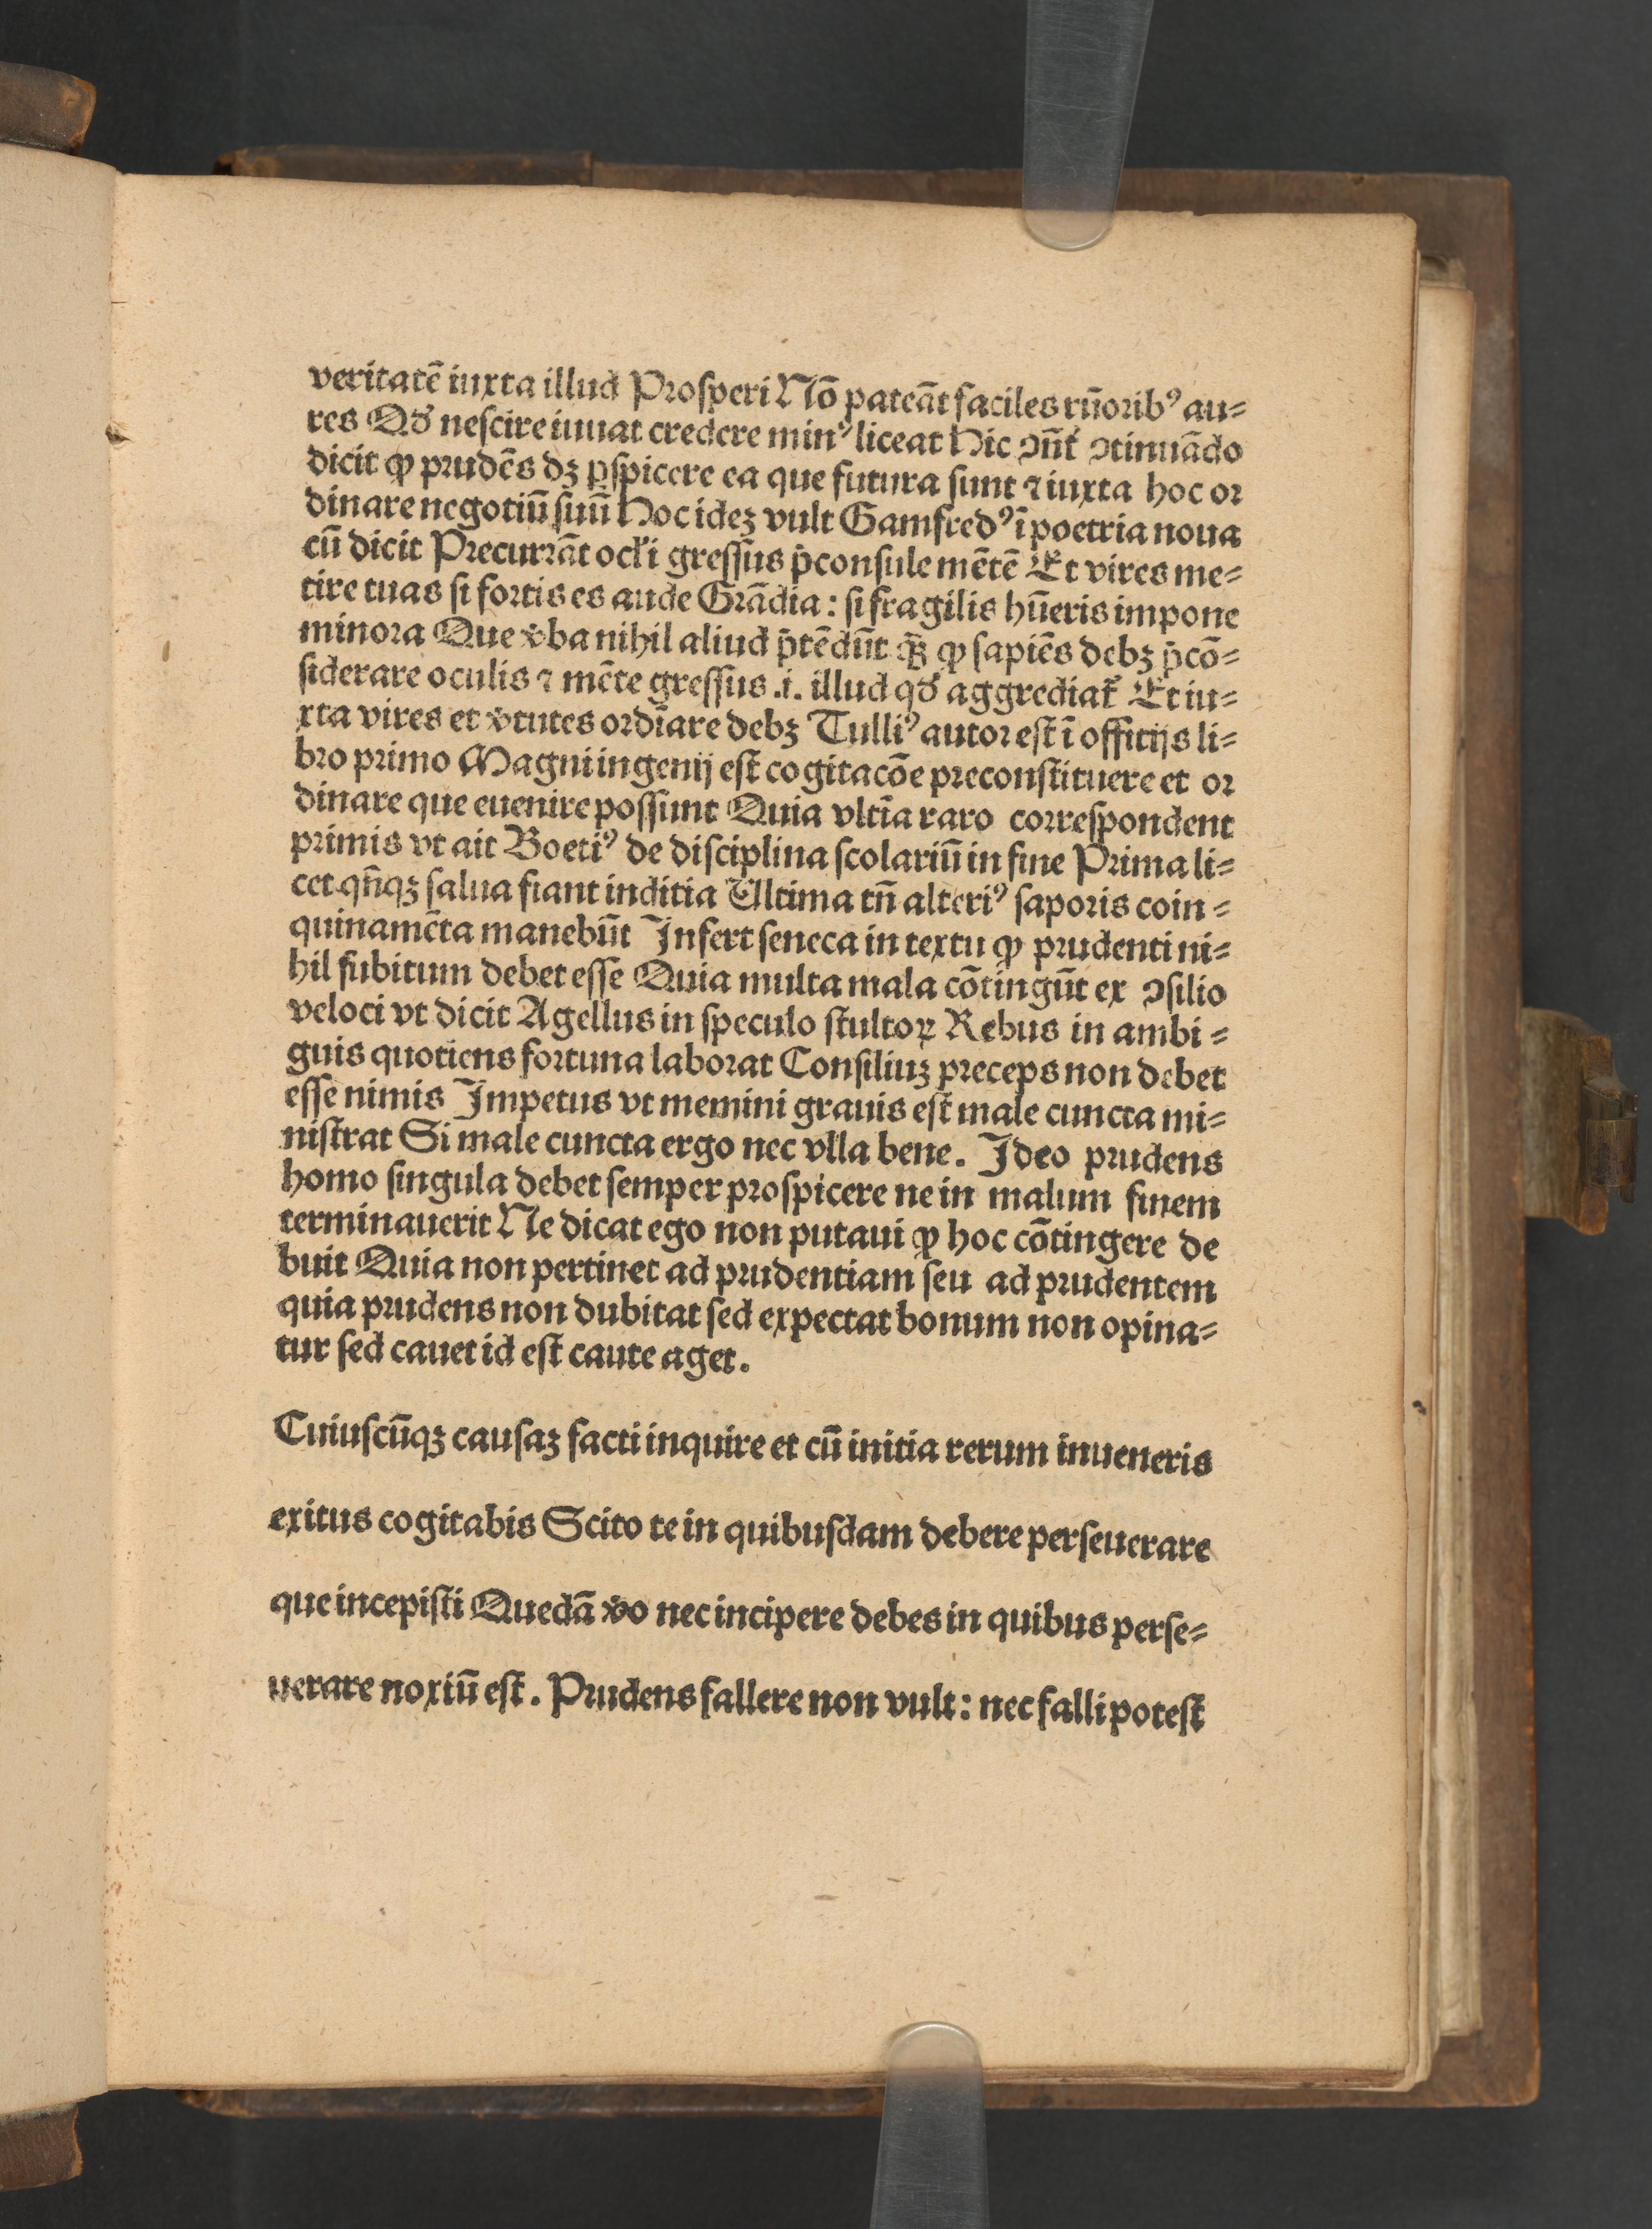 veritatē iuxta illud Prosperi Nō pateāt faciles rūoribꝰ au⸗
res Qđ nescire iuuat credere minꝰ liceat Hic ↄn̄t ↄtinuādo
dicit ꝙ prudēs dꝫ ꝓspicere ea que futura sunt ⁊ iuxta hoc or
dinare negotiū suū Hoc ideꝫ vult Gamfredꝰ ī poetria noua
cū dicit Precurrāt ocl'i gressus p̄consule mētē Et vires me⸗
tire tuas si fortis es aude Grādia : si fragilis hūeris impone
minora Que v̓ba nihil aliud p̄tēdūt qꝫ̄ ꝙ sapiēs debꝫ p̄cō⸗
siderare oculis ⁊ mēte gressus .i. illud qđ aggrediat᷑ Et iu⸗
xta vires et v̓tutes ordīare debꝫ Tulliꝰ autor est ī offitijs li⸗
bro primo Magni ingenij est cogitacōe preconstituere et or
dinare que euenire possunt Quia vltīa raro correspondent
primis vt ait Boetiꝰ de disciplina scolariū in fine Prima li⸗
cet qn̄qꝫ salua fiant inditia Ultima tn̄ alteriꝰ saporis coin⸗
quinamēta manebūt Infert seneca in textu ꝙ prudenti ni⸗
hil subitum debet esse Quia multa mala cōtingūt ex ↄsilio
veloci vt dicit Agellus in speculo stultoꝝ Rebus in ambi⸗
guis quotiens fortuna laborat Consiliuꝫ preceps non debet
esse nimis Impetus vt memini grauis est male cuncta mi⸗
nistrat Si male cuncta ergo nec vlla bene. Ideo prudens
homo singula debet semper prospicere ne in malum finem
terminauerit Ne dicat ego non putaui ꝙ hoc cōtingere de
buit Quia non pertinet ad prudentiam seu ad prudentem
quia prudens non dubitat sed expectat bonum non opina⸗
tur sed cauet id est caute aget.
Cuiuscūqꝫ causaꝫ facti inquire et cū initia rerum inueneris
exitus cogitabis Scito te in quibusdam debere perseuerare
que incepisti Quedā v̓o nec incipere debes in quibus perse⸗
uerare noxiū est. Prudens fallere non vult : nec falli potest